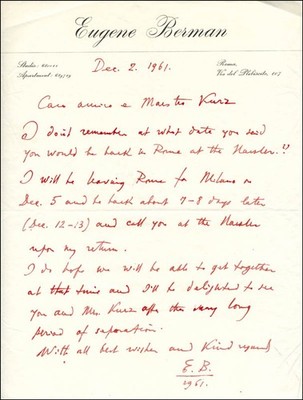 Eugene Berman
Studio:
Apartment:
Roma,
Via del Plebiscito, 107
Dec. 2. 1961.
Caro amico e Maestro Kurz
I don't remember at what date you said
you would be back in Rome at the Hassler.!!
I will be leaving Rome for Milano on
Dec. 5 and be back about 7-8 days later
(Dec. 12-13) and call you at the Hassler
upon my return.
I do hope we will be able to get together
at that time and I'll be delighted to see
you and Mrs. Kurz after this very long
period of separation.
With all best wishes and kind regards
E.B.
1961.